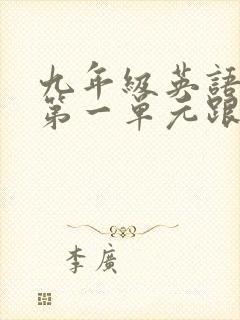 九年級英語
第一單元跟
李廣